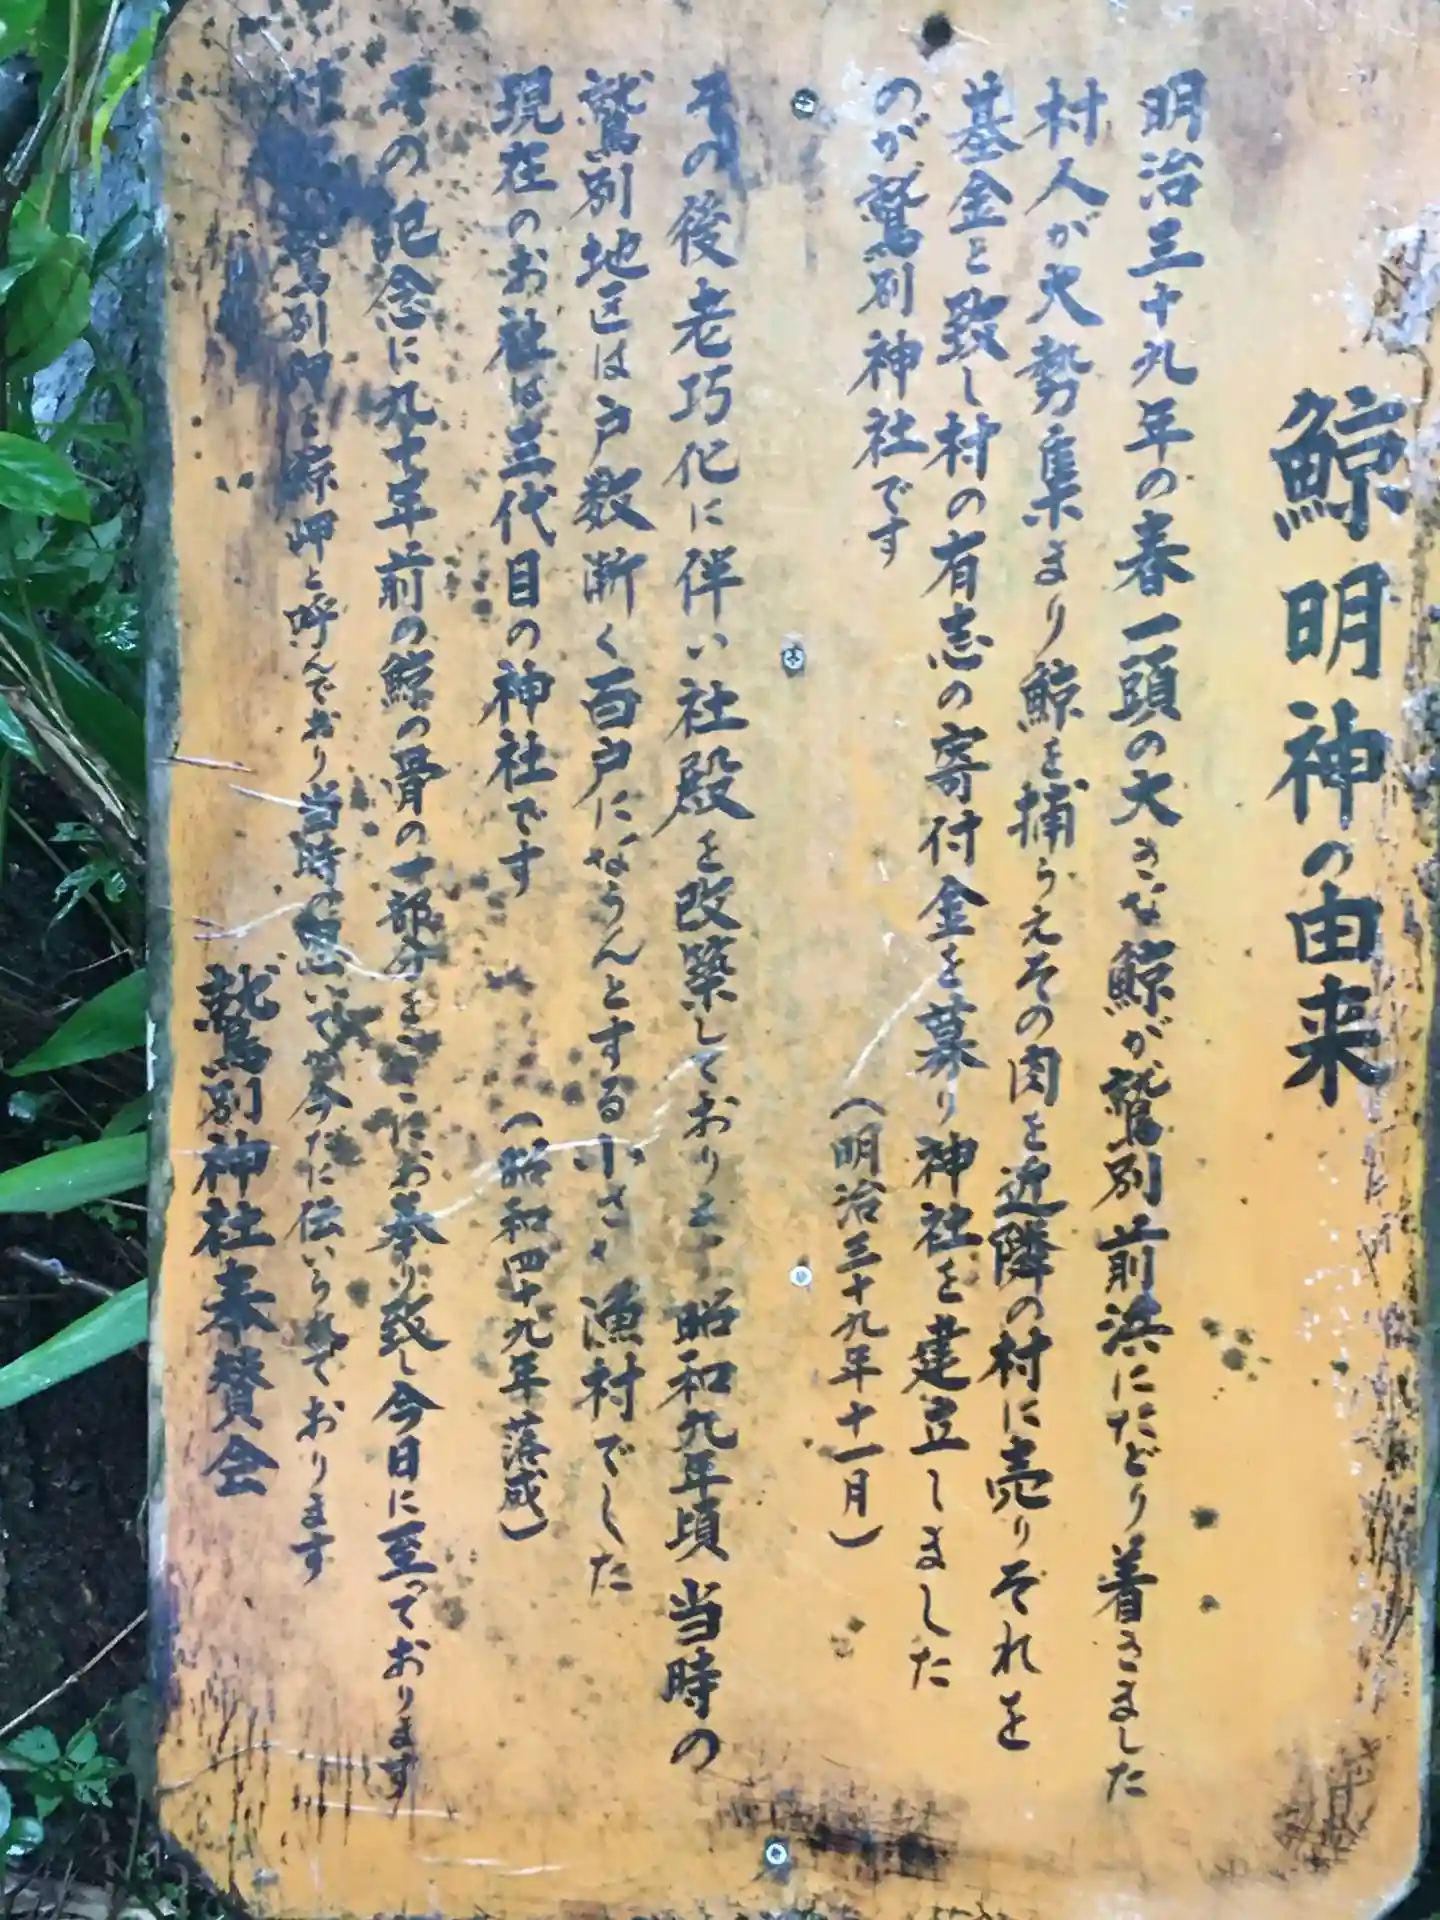 鯨明神の由来
明治三十九年の春一頭の大きな鯨が鷲別前浜にたどり着きました
村人が大勢集まり鯨を捕らえその肉を近隣の村に売りそれを
基金と致し村の有志の寄付金を募り神社を建立しました
のが鷲別神社です
(明治三十九年十一月)
その後老巧化に伴い社殿を改築しており 昭和九年頃当時の
鷲別地区は戸数漸く百戸になうんとする小さな漁村でした
現在のお社は三代目の神社です
(昭和四十九年落成)
その記念に九十年前の鯨の骨の一部分をここにお奉り致し今日に至っております
鷲別岬を鯨岬と呼んでおり当時の思いで今だに伝いられております
鷲別神社奉賛会